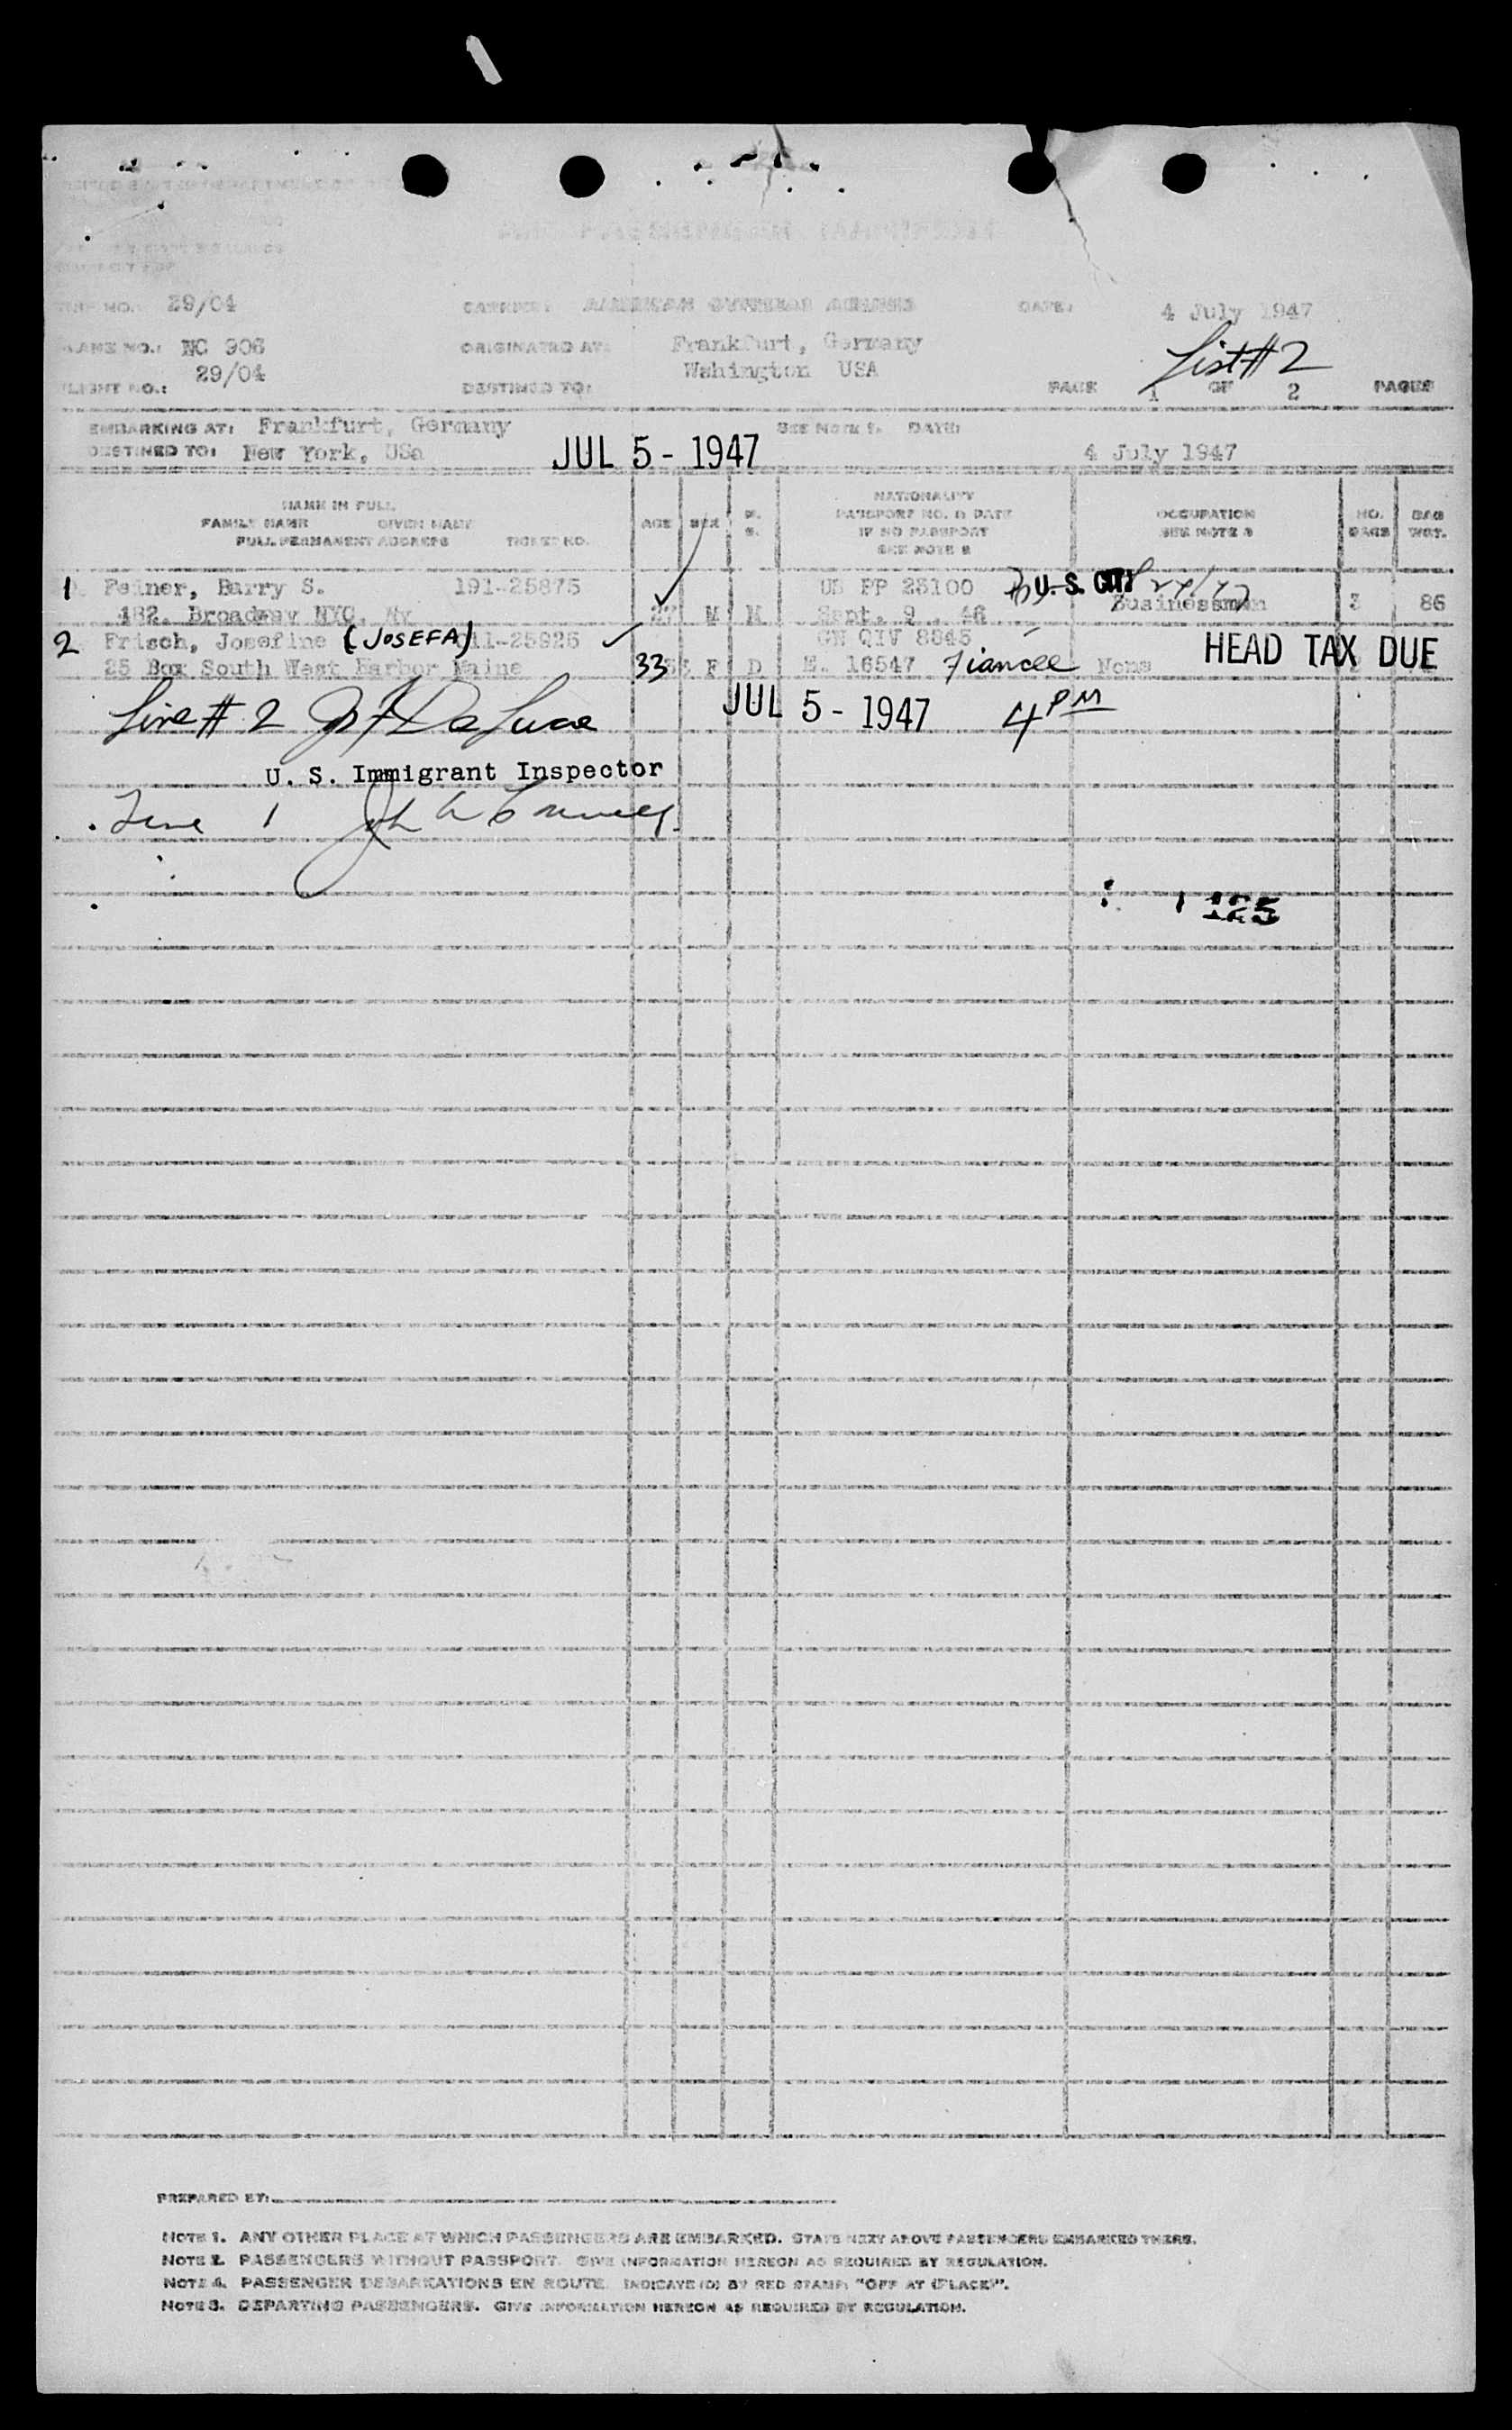 AIR PASSENGER MANIFEST
29/04 CARRIER: AMERICAN OVERSEAS AIRLINES DATE: 4 July 1947
PLANE NO.: NC 906 ORIGINATED AT: Frankfurt, Germany List # 2
FLIGHT NO.: 29/04 DESTINED TO: Wahington USA PAGE 1 OF 2 PAGES
EMBARKING AT: Frankfurt, Germany SEE NOTE 1. DATE:
DESTINED TO: New York, USa JUL 5 - 1947 4 July 1947
NAME IN FULL
FAMILY NAME GIVEN NAME
FULL PERMANENT ADDRESS TICKET NO.
AGE SEX M. S.
NATIONALITY
PASSPORT NO. & DATE
IF NO PASSPORT
SEE NOTE 2
OCCUPATION
SEE NOTE 3
NO. BAGS
BAG WGT.
1 Feiner, Barry S. 191-25875 US PP 23100 U. S. CIT.
482. Broadway NYC, Ny 27 M M Sept. 9. 46 Businessman 3 86
2 Frisch, Josefine (JOSEFA) 11-25926 GN QIV 8845 HEAD TAX DUE
25 Box South West Harbor Maine 33 F D 16547 Fiancee None
Line # 2 JUL 5 - 1947 4 PM
U. S. Immigrant Inspector
Line 1
125
PREPARED BY:
NOTE 1. ANY OTHER PLACE AT WHICH PASSENGERS ARE EMBARKED. STATE NEXT ABOVE PASSENGERS EMBARKED THERE.
NOTE 2. PASSENGERS WITHOUT PASSPORT. GIVE INFORMATION HEREON AS REQUIRED BY REGULATION.
NOTE 4. PASSENGER DEBARKATIONS EN ROUTE. INDICATE (D) BY RED STAMP: "OFF AT (PLACE)".
NOTE 3. DEPARTING PASSENGERS. GIVE INFORMATION HEREON AS REQUIRED BY REGULATION.